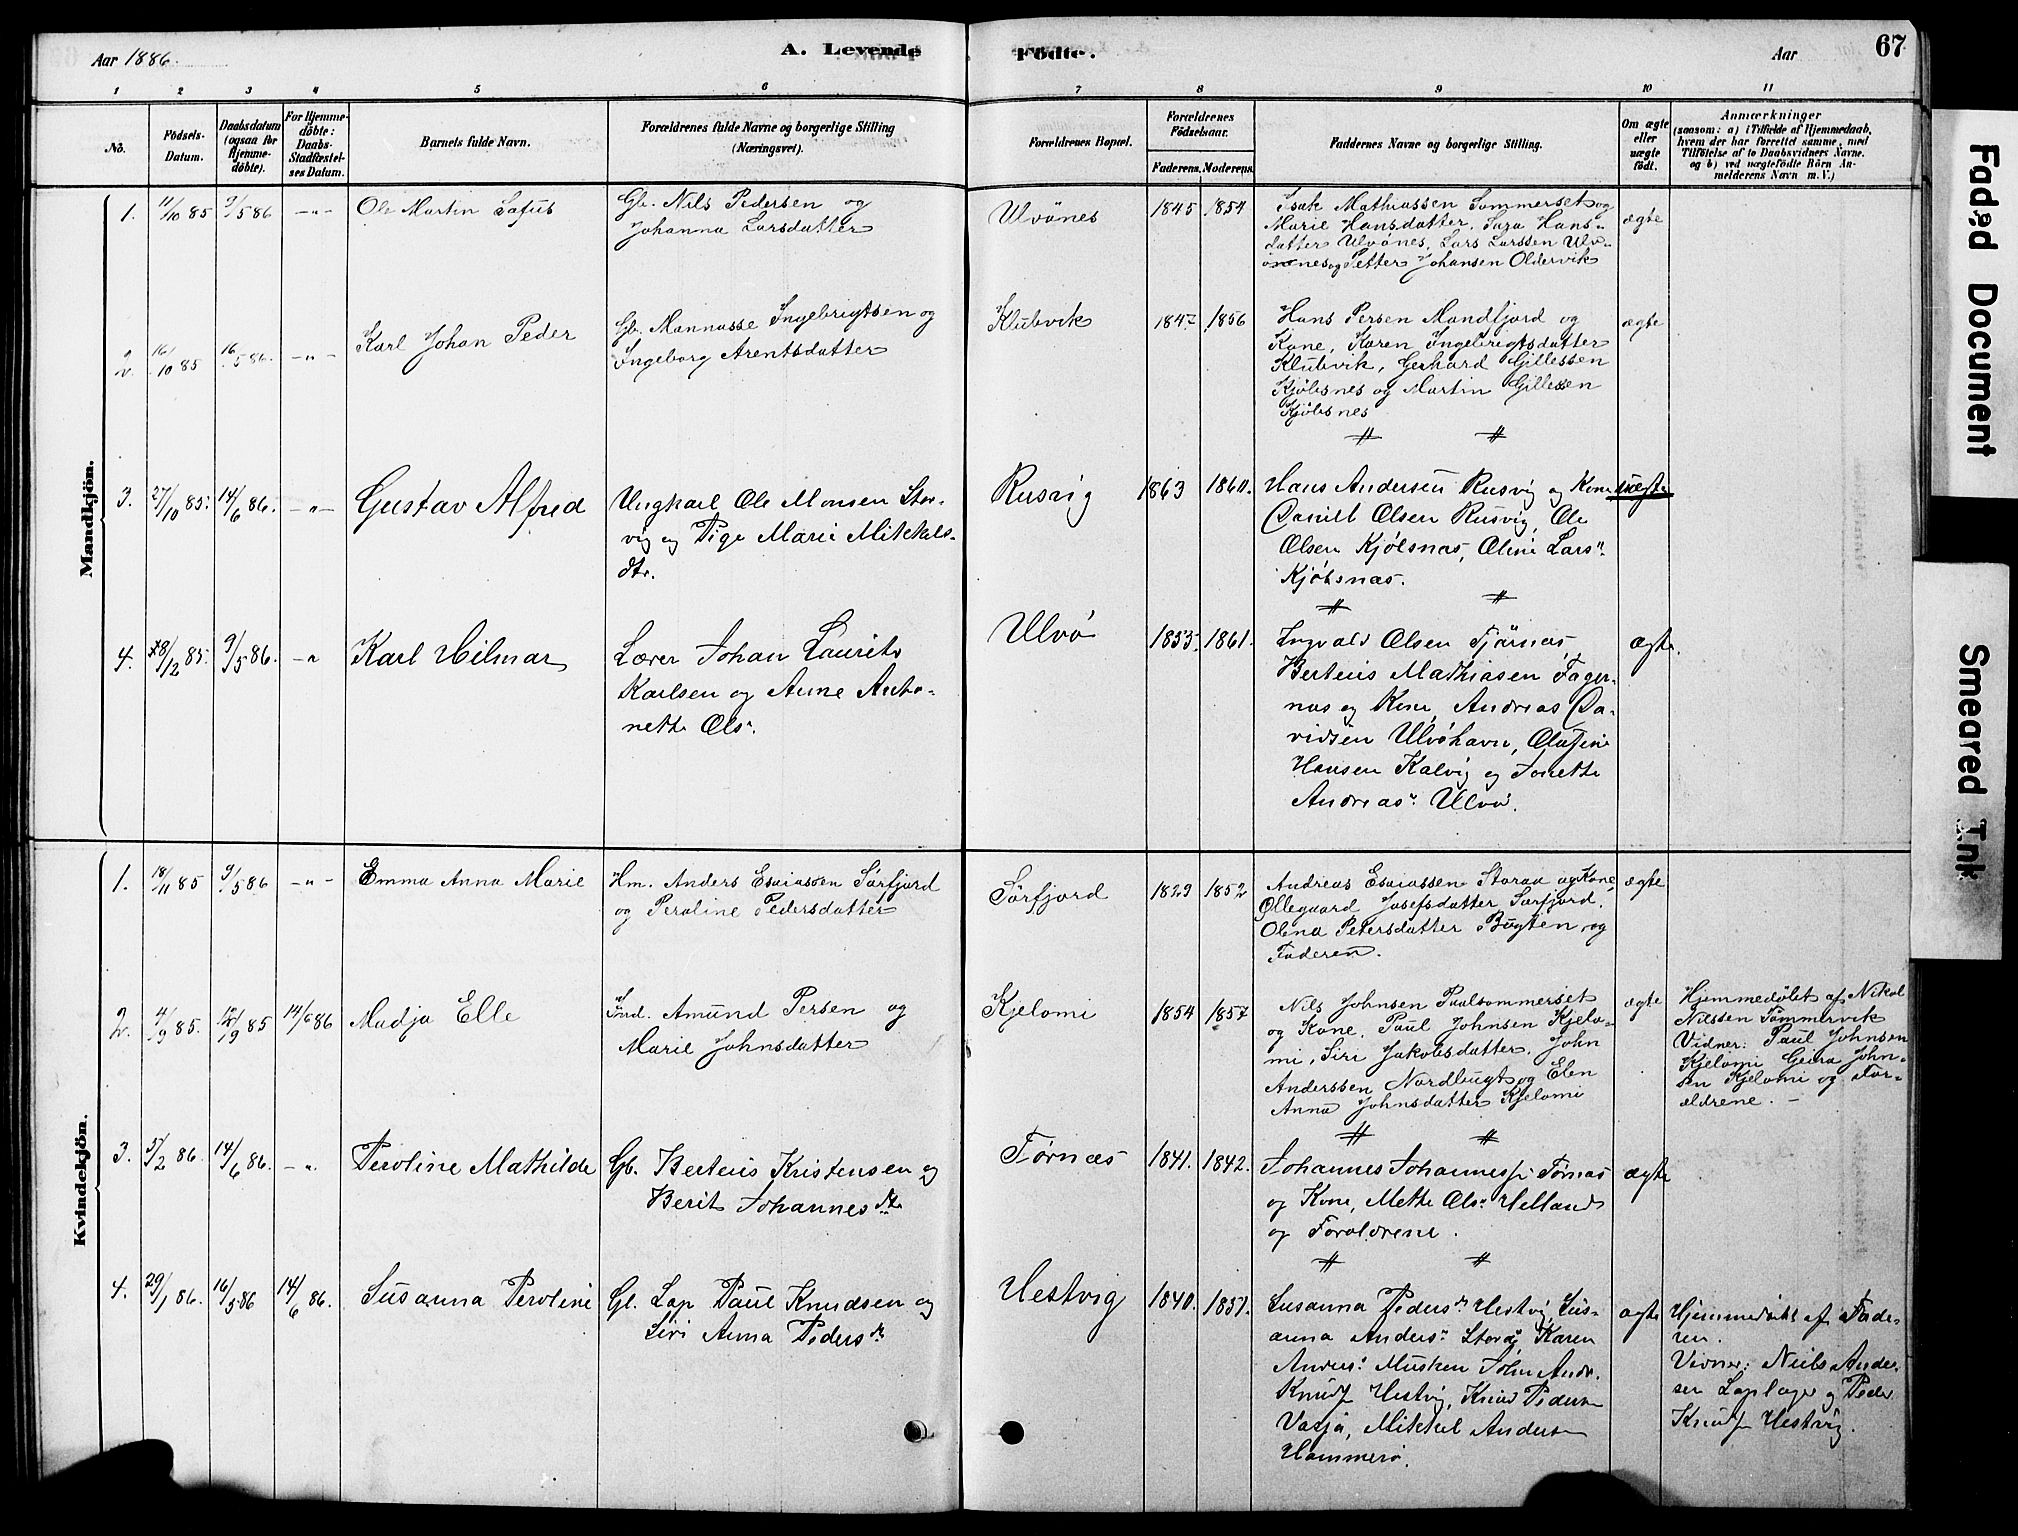 Aar 1886.
A. Levende
Födte.
Aar
67
1 2 3 4 5 6 7 8 9 10 11
No.
Födsels-
Datum.
Daabsdatum
(ogsaa for
Hjemme-
døbte).
For Hjemme-
döbte:
Daabs-
Stadfæstel-
ses Datum.
Barnets fulde Navn.
Forældrenes fulde Navne og borgerlige Stilling
(Næringsvei).
Forældrenes Bopæl.
Forældrenes
Födselsaar.
Faderens. Moderens.
Faddernes Navne og borgerlige Stilling.
Om ægte
eller
uægte
födt.
Anmærkninger
(saasom: a) i Tilfælde af Hjemmedaab,
hvem der har forrettet samme, med
Tilföielse af to Daabsvidners Navne.
og b) ved uægtefödte Börn An-
melderens Navn m. V.)
Mandkjön.
1.
11/10 85
9/5 86
-"-
Ole Martin Safus
Gb. Nils Pedersen og
Johanna Larsdatter
Ulvönes
1845
1854
Isak Mathiassen Sommerset og
Marie Hansdatter, Sara Hans-
datter Ulvönes, Lars Larssen Ulv-
önes og Petter Johansen Oldervik
ægte
2.
16/10 85
16/5 86.
-"-
Karl Johan Peder
Gb. Mannasse Ingebrigtsen og
Ingeborg Arentsdatter
Klubvik
1847
1856
Hans Persen Mandfjord og
Kone, Karen Ingebrigtsdatter
Klubvik, Gerhard Gillessen
Kjöbsnes og Martin Gillessen
Kjöbsnes
ægte
3.
27/10 85.
14/6 86.
-"-
Gustav Alfred
Ungkarl Ole Monsen Stor-
vig og Pige Marie Mikkels-
dtr.
Rusvig
1863
1860.
Hans Andersen Rusvig og Kone
Daniel Olsen Rusvig, Ole
Olsen Kjölsnæs, Oline Lars"
Kjöbsnæs.
uægte
4.
28/12 85.
9/5 86.
-"
Karl Hilmar
Lærer Johan Laurits
Karlsen og Anne Anto-
nette Ols".
Ulvö
1853.
1861.
Ingvald Olsen Tjörnæs,
Berteus Mathiasen Fager-
næs og Kone, Andreas Da-
vidsen Ulvöhavn, Olufine
Hansen Kalvig og Jonette
Andreas" Ulvö.
ægte.
Kvindekjön.
1.
18/11 85
9/5 86
-"-
Emma Anna Marie
Hm. Anders Esaiassen Sörfjord
og Peroline Pedersdatter
Sörfjord
1829
1852
Andreas Esaiassen Storaa og Kone,
Ollegaard Josefsdatter Sörfjord.
Olena Petersdatter Bugten, og
Faderen.
ægte
2.
4/9 85.
/9 85
14/6 86
Madja Elle
Ind. Amund Persen og
Marie Johnsdatter
Kjelomi
1854
1857
Nils Johnsen Paulsommerset
og Kone, Paul Johnsen Kjelo-
mi, Siri Jakobsdatter, John
Anderssen Nordbugt og Elen
Anna Johnsdatter Kjelomi
ægte
Hjemmedöbt af Nikol
Nilssen Tömmervik
Vidner: Paul Johnsen
Kjelomi Geira John-
sen Kjelomi og For-
ældrene. -
3.
5/2 86.
14/6 86.
-"
Peroline Mathilde
Gb. Berteus Kristensen og
Berit Johannesdtr
Tørnæs
1841.
1842.
Johannes Johanness. Törnæs
og Kone, Mette Ols" Helland
og Forældrene.
ægte
4.
29/1 86.
16/5 86
14/6 86.
Susanna Peroline
Gb. Lap Paul Knudsen og
Siri Anna Peders dr
Hestvig
1840.
1851.
Susanna Peders dr Hestvig, Sus-
anna Anders" Storåg, Karen
Anders" Musken John Andr.
Knuds. Hestvig, Knud Peders
Vasja, Mikkel Anders
Hammerö.
ægte
Hjemmedöbt af Fade-
ren.
Vidner: Niels Ander-
sen Laplæger og Peder
Knuds. Hestvig.
Faded Document
Smeared Ink